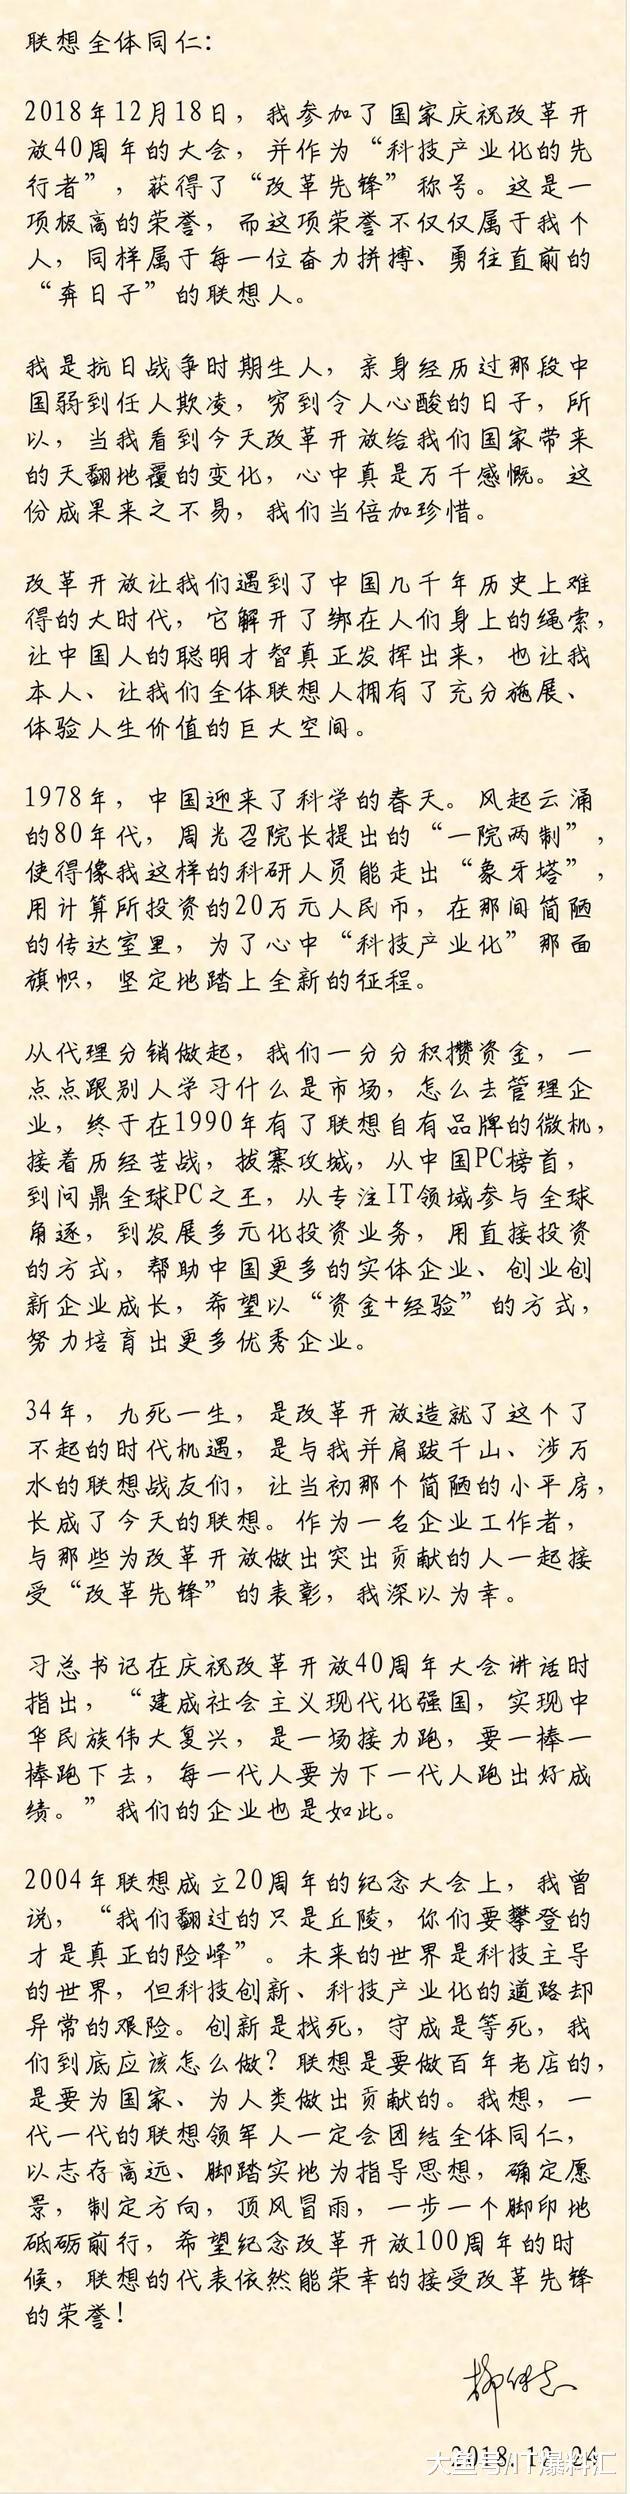 联想全体同仁：
2018年12月18日，我参加了国家庆祝改革开
放40周年的大会，并作为“科技产业化的先
行者”，获得了“改革先锋”称号。这是一
项极高的荣誉，而这项荣誉不仅仅属于我个
人，同样属于每一位奋力拼搏、勇往直前的
“奔日子”的联想人。
我是抗日战争时期生人，亲身经历过那段中
国弱到任人欺凌，穷到令人心酸的日子，所
以，当我看到今天改革开放给我们国家带来
的天翻地覆的变化，心中真是万千感慨。这
份成果来之不易，我们当倍加珍惜。
改革开放让我们遇到了中国几千年历史上难
得的大时代，它解开了绑在人们身上的绳索，
让中国人的聪明才智真正发挥出来，也让我
本人、让我们全体联想人拥有了充分施展、
体验人生价值的巨大空间。
1978年，中国迎来了科学的春天。风起云涌
的80年代，周光召院长提出的“一院两制”，
使得像我这样的科研人员能走出“象牙塔”，
用计算所投资的20万元人民币，在那间简陋
的传达室里，为了心中“科技产业化”那面
旗帜，坚定地踏上全新的征程。
从代理分销做起，我们一分分积攒资金，一
点点跟别人学习什么是市场，怎么去管理企
业，终于在1990年有了联想自有品牌的微机，
接着历经苦战，拔寨攻城，从中国PC榜首，
到问鼎全球PC之王，从专注IT领域参与全球
角逐，到发展多元化投资业务，用直接投资
的方式，帮助中国更多的实体企业、创业创
新企业成长，希望以“资金+经验”的方式，
努力培育出更多优秀企业。
34年，九死一生，是改革开放造就了这个了
不起的时代机遇，是与我并肩跋千山、涉万
水的联想战友们，让当初那个简陋的小平房，
长成了今天的联想。作为一名企业工作者，
与那些为改革开放做出突出贡献的人一起接
受“改革先锋”的表彰，我深以为幸。
习总书记在庆祝改革开放40周年大会讲话时
指出，“建成社会主义现代化强国，实现中
华民族伟大复兴，是一场接力跑，要一棒一
棒跑下去，每一代人要为下一代人跑出好成
绩。”我们的企业也是如此。
2004年联想成立20周年的纪念大会上，我曾
说，“我们翻过的只是丘陵，你们要攀登的
才是真正的险峰”。未来的世界是科技主导
的世界，但科技创新、科技产业化的道路却
异常的艰险。创新是找死，守成是等死，我
们到底应该怎么做？联想是要做百年老店的，
是要为国家、为人类做出贡献的。我想，一
代一代的联想领军人一定会团结全体同仁，
以志存高远、脚踏实地为指导思想，确定愿
景，制定方向，顶风冒雨，一步一个脚印地
砥砺前行，希望纪念改革开放100周年的时
候，联想的代表依然能荣幸的接受改革先锋
的荣誉！
柳传志
2018.12.24
大鱼号/IT爆料汇